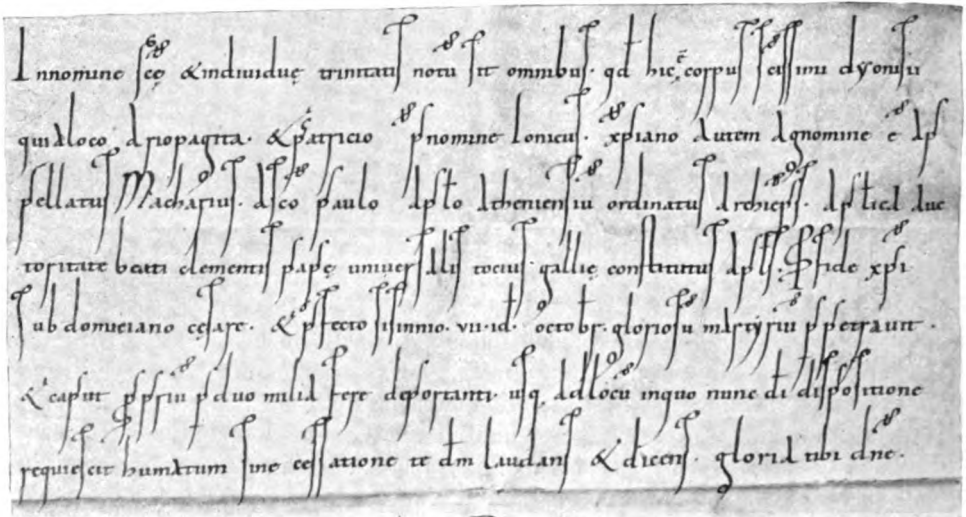 In nomine scę & individuę trinitatis notu sit omnibus. qd hic ē corpus scissimi dyonisii
qui a loco ariopagita. & patricio pnomine Ionicus. xpiano autem agnomine e ap
pellatus Macharius. a sco paulo apło atheniensiu ordinatus archieps. aplica auc
toritate beati clementis papę universalis tocius gallię constitutus apls. P fide xpi
sub domiciano cesare. & pfecto sisinnio. vii. id. octobr. gloriosu martyriu ppetravit.
& caput ppriu p duo milia fere deportanti. usq ad locu in quo nunc di dispositione
requiescit humatum sine cessatione te dm laudans & dicens. gloria tibi dne.